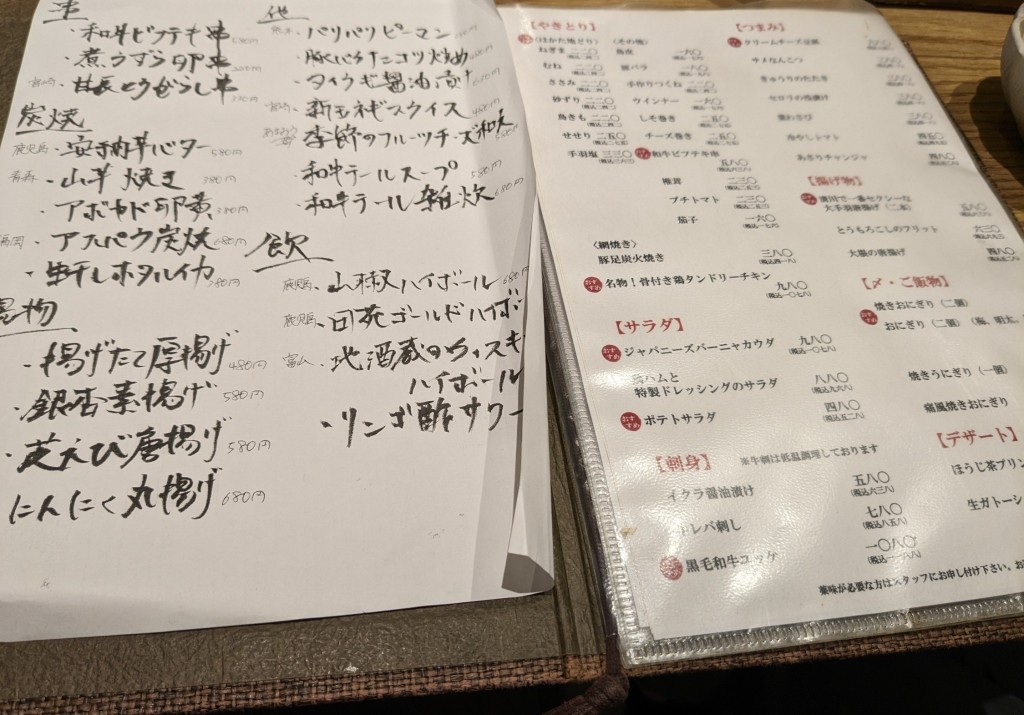 串
・和牛ビフテキ串
・煮うずら卵串
・甘長とうがらし串
炭焼
鹿児島・安納芋バター 580円
青森・山芋焼き 380円
・アボカド卵黄 380円
福岡・アスパラ炭焼 680円
・生干しホタルイカ 580円
揚物
・揚げたて厚揚げ 480円
・銀杏素揚げ 580円
・芝えび唐揚げ 580円
にんにく丸揚げ 680円
他
・パリパリピーマン
・豚バラナンコツ炒め
・タイラギ醤油漬け
・新玉ネギスライス
・季節のフルーツチーズ和え
・和牛テールスープ 580円
・和牛テール雑炊 680円
飲
鹿児島・山椒ハイボール 680円
鹿児島・日苑ゴールドハイボ
富山・地酒蔵のウィスキ
ハイボール
・リンゴ酢サワー
【やきとり】
〈はかた地どり〉
ねぎま 二二〇
むね 二二〇
ささみ 二二〇
砂ずり 二二〇
鳥きも 二二〇
せせり 二五〇
手羽塩 三三〇
〈その他〉
鳥皮 一六〇
豚バラ 一八〇
手作りつくね
ウインナー 一六〇
しそ巻き 二五〇
チーズ巻き 二五〇
和牛ビフテキ串 五八〇
椎茸 二三〇
プチトマト 二三〇
茄子 一六〇
〈網焼き〉
豚足炭火焼き 三八〇
(税込四一八)
おすすめ 名物！骨付き鶏タンドリーチキン 九八〇
(税込一〇七八)
【サラダ】
おすすめ ジャパニーズバーニャカウダ 九八〇
(税込一〇七八)
鶏ハムと
特製ドレッシングのサラダ 八八〇
(税込九六八)
おすすめ ポテトサラダ 四八〇
(税込五二八)
【刺身】 ※牛刺は低温調理しております
イクラ醤油漬け 五八〇
(税込六三八)
レバ刺し 七八〇
(税込八五八)
黒毛和牛ユッケ 一〇八〇
(税込一一八八)
【つまみ】
クリームチーズ豆腐
サメなんこつ
きゅうりのたたき
セロリの浅漬け
冷やしトマト 四五〇
あきらチャンジャ 四八〇
【揚げ物】
清川で一番セクシーな
大手羽唐揚げ（二本） 五八〇
とうもろこしのフリット 六三〇
大根の唐揚げ 四八〇
【〆・ご飯物】
焼きおにぎり（二個）
おすすめ おにぎり（二個）（梅、明太、
焼きうにぎり（一個）
痛風焼きおにぎり
【デザート】
ほうじ茶プリン
生ガトーシ
薬味が必要な方はスタッフにお申し付け下さい。お